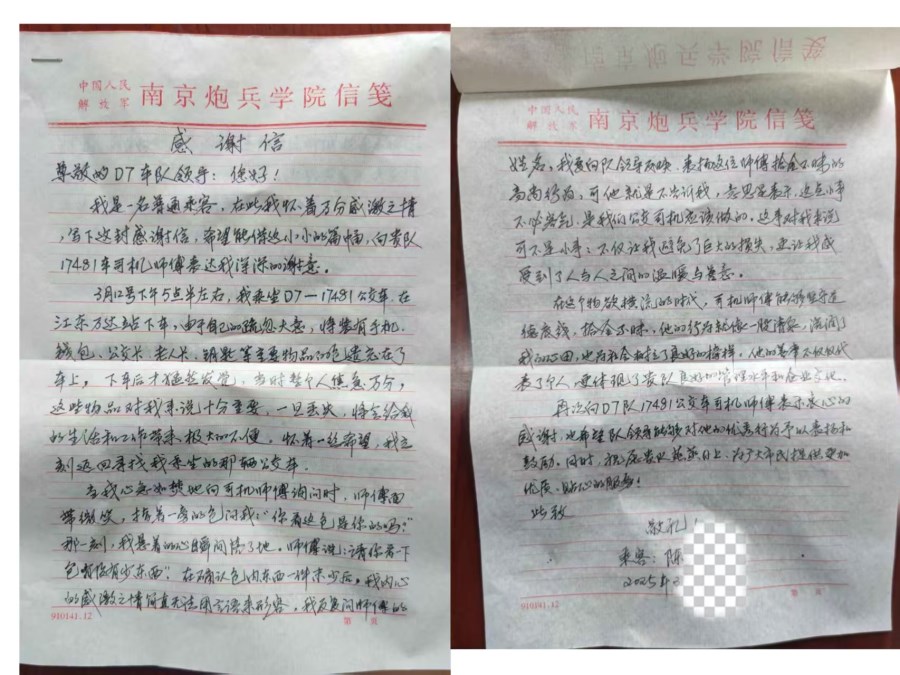 中国人民
解放军
南京炮兵学院信笺
感谢信
尊敬的D7车队领导：您好！
我是一名普通乘客，在此我怀着万分感激之情
，写下这封感谢信，希望能借这小小的篇幅，向贵队
17481车司机师傅表达我深深的谢意。
3月12号下午5点半左右，我乘坐D7—17481公交车，在
江东万达站下车，由于自己的疏忽大意，将装有手机、
钱包、公交卡、老人卡、钥匙等重要物品的包遗忘在了
车上，下车后才猛然发觉，当时整个人焦急万分，
这些物品对我来说十分重要，一旦丢失，将会给我
的生活和工作带来极大的不便，怀着一丝希望，我立
刻返回寻找我乘坐的那辆公交车.
在我心急如焚地向司机师傅询问时，师傅面
带微笑，指着一旁的包问我："你看这包是你的吗？"
那一刻，我悬着的心瞬间落了地。师傅说："请你看一下
包内有没有少东西"。在确认包内东西一件未少后，我内心
的感激之情简直无法用言语来形容，我反复问师傅的
910141.12
第 页
中国人民
解放军
南京炮兵学院信笺
姓名，我要向队领导反映，表扬这位师傅拾金不昧的
高尚行为，可他就是不告诉我，意思是表示，这点小事
不必客气，是我们公交司机应该做的。这事对我来说
可不是小事：不仅让我避免了巨大的损失，更让我感
受到了人与人之间的温暖与善意。
在这个物欲横流的时代，司机师傅能够坚守道
德底线，拾金不昧，他的行为就像一股清泉，滋润了
我的心田，也为社会树立了良好的榜样。他的善举不仅仅代
表了个人，更体现了贵队良好的管理水平和企业文化。
再次向D7队17481公交车司机师傅表示衷心的
感谢，也希望队领导能够对他的优秀行为予以表扬和
鼓励。同时，祝愿贵业蒸蒸日上，为广大市民提供更加
优质、贴心的服务！
此致
敬礼！
乘客：陈
2025年3
910141.12
第 页